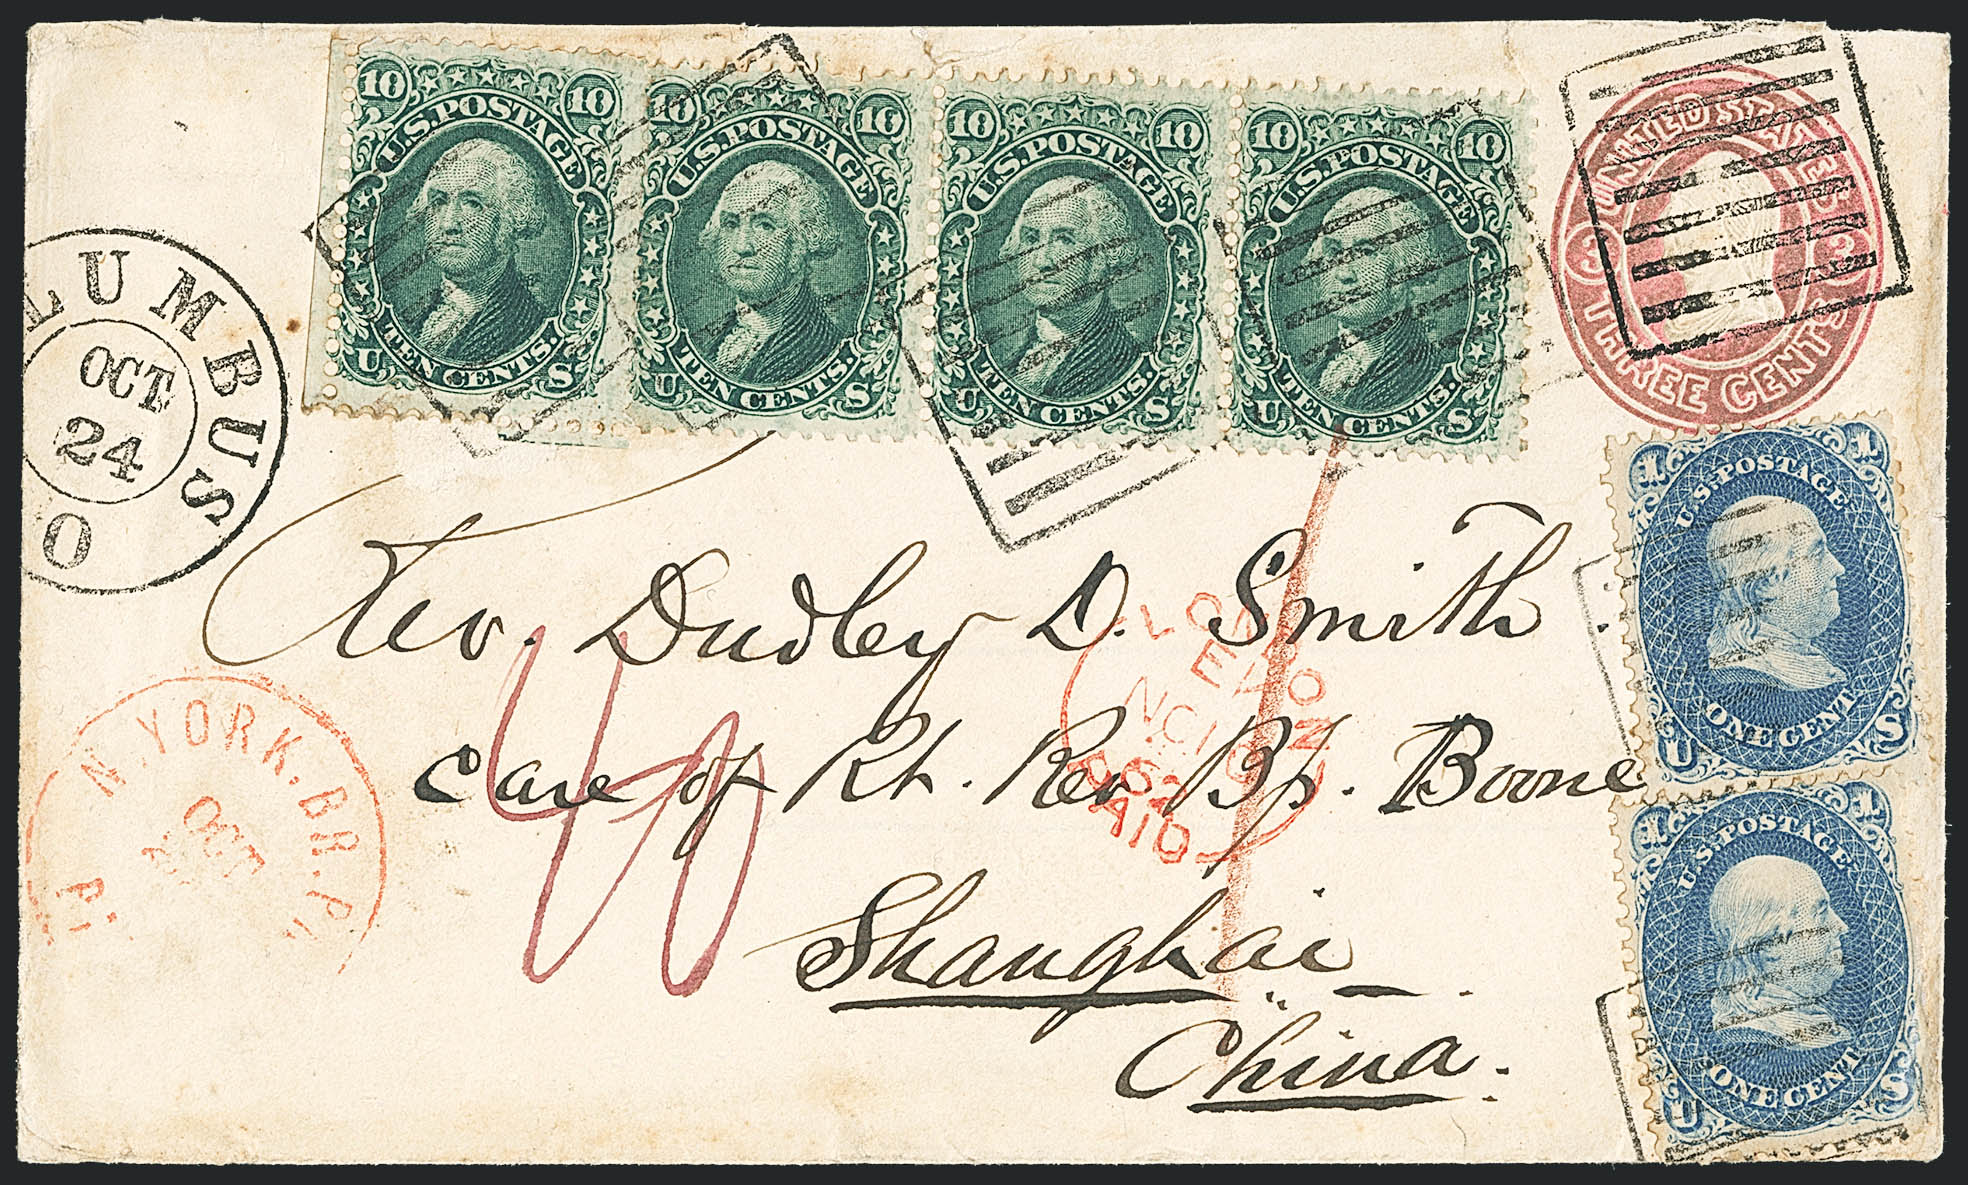 10 10
U.S. POSTAGE
TEN CENTS.
U S
10 10
U.S. POSTAGE
TEN CENTS.
U S
10 10
U.S. POSTAGE
TEN CENTS.
U S
10 10
U.S. POSTAGE
TEN CENTS.
U S
UNITED STATES
3 3
THREE CENTS
LUMBUS
OCT
24
O
1 1
U.S. POSTAGE
ONE CENT
U S
Rev. Dudley D. Smith.
Care of Rt. Rev Bp. Boone
Shanghai
China.
40
N. YORK. BR. P
OCT
P
LONDON
EV
NO 10
62
PAID
1 1
U.S. POSTAGE
ONE CENT
U S